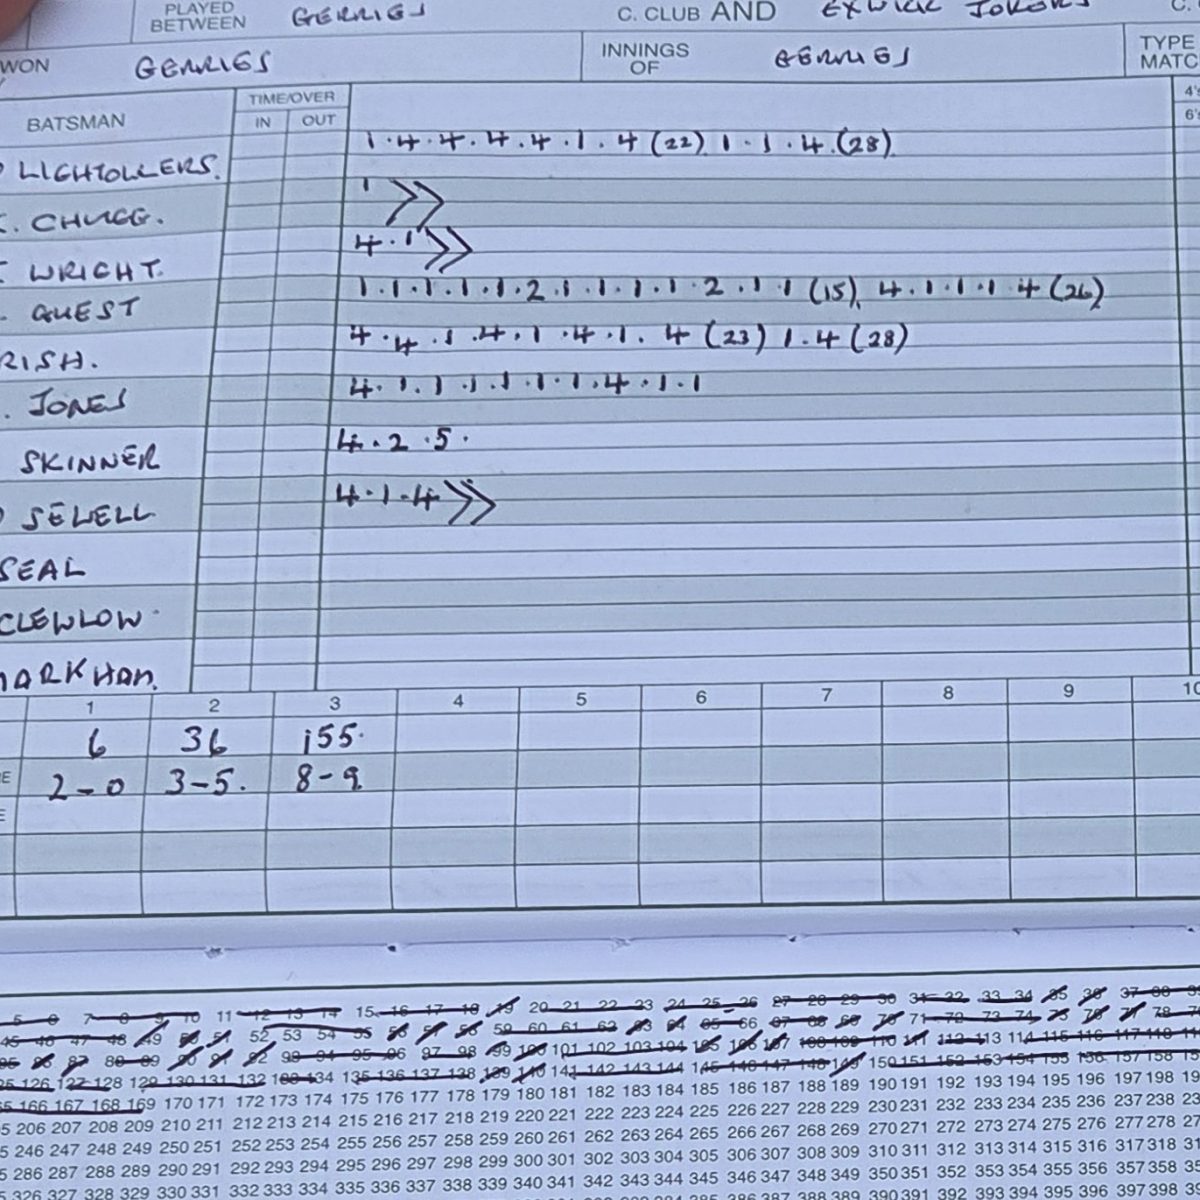 PLAYED BETWEEN GERRIES C. CLUB AND EXWICK JOKERS C.
WON GERRIES INNINGS OF GERRIES TYPE MATC
BATSMAN TIME/OVER 4's
IN OUT 6's
LIGHTOLLERS. 1.4.4.4.4.1.4(22) 1.1.4.(28)
CHUGG. 1 >>
WRIGHT. 4.1 >>
GUEST 1.1.1.1.1.2.1.1.1.1.2.1.1(15) 4.1.1.1.4(26)
RISH. 4.4.1.4.1.4.1.4(23) 1.4(28)
JONES 4.1.1.1.1.1.1.4.1.1
SKINNER 4.2.5.
SEWELL 4.1.4 >>
SEAL
CLEWLOW
MARKHAM.
1 2 3 4 5 6 7 8 9 10
6 36 155.
2-0 3-5. 8-9.
5 6 7 8 9 10 11 12 13 14 15 16 17 18 19 20 21 22 23 24 25 26 27 28 29 30 31 32 33 34 35 36 37 38 39
45 46 47 48 49 50 51 52 53 54 55 56 57 58 59 60 61 62 63 64 65 66 67 68 69 70 71 72 73 74 75 76 77 78 79
86 87 88 89 90 91 92 93 94 95 96 97 98 99 100 101 102 103 104 105 106 107 108 109 110 111 112 113 114 115 116 117 118
126 127 128 129 130 131 132 133 134 135 136 137 138 139 140 141 142 143 144 145 146 147 148 149 150 151 152 153 154 155 156 157 158
166 167 168 169 170 171 172 173 174 175 176 177 178 179 180 181 182 183 184 185 186 187 188 189 190 191 192 193 194 195 196 197 198
206 207 208 209 210 211 212 213 214 215 216 217 218 219 220 221 222 223 224 225 226 227 228 229 230 231 232 233 234 235 236 237 238
246 247 248 249 250 251 252 253 254 255 256 257 258 259 260 261 262 263 264 265 266 267 268 269 270 271 272 273 274 275 276 277 278
286 287 288 289 290 291 292 293 294 295 296 297 298 299 300 301 302 303 304 305 306 307 308 309 310 311 312 313 314 315 316 317 318
326 327 328 329 330 331 332 333 334 335 336 337 338 339 340 341 342 343 344 345 346 347 348 349 350 351 352 353 354 355 356 357 358
387 388 389 390 391 392 393 394 395 396 397 398